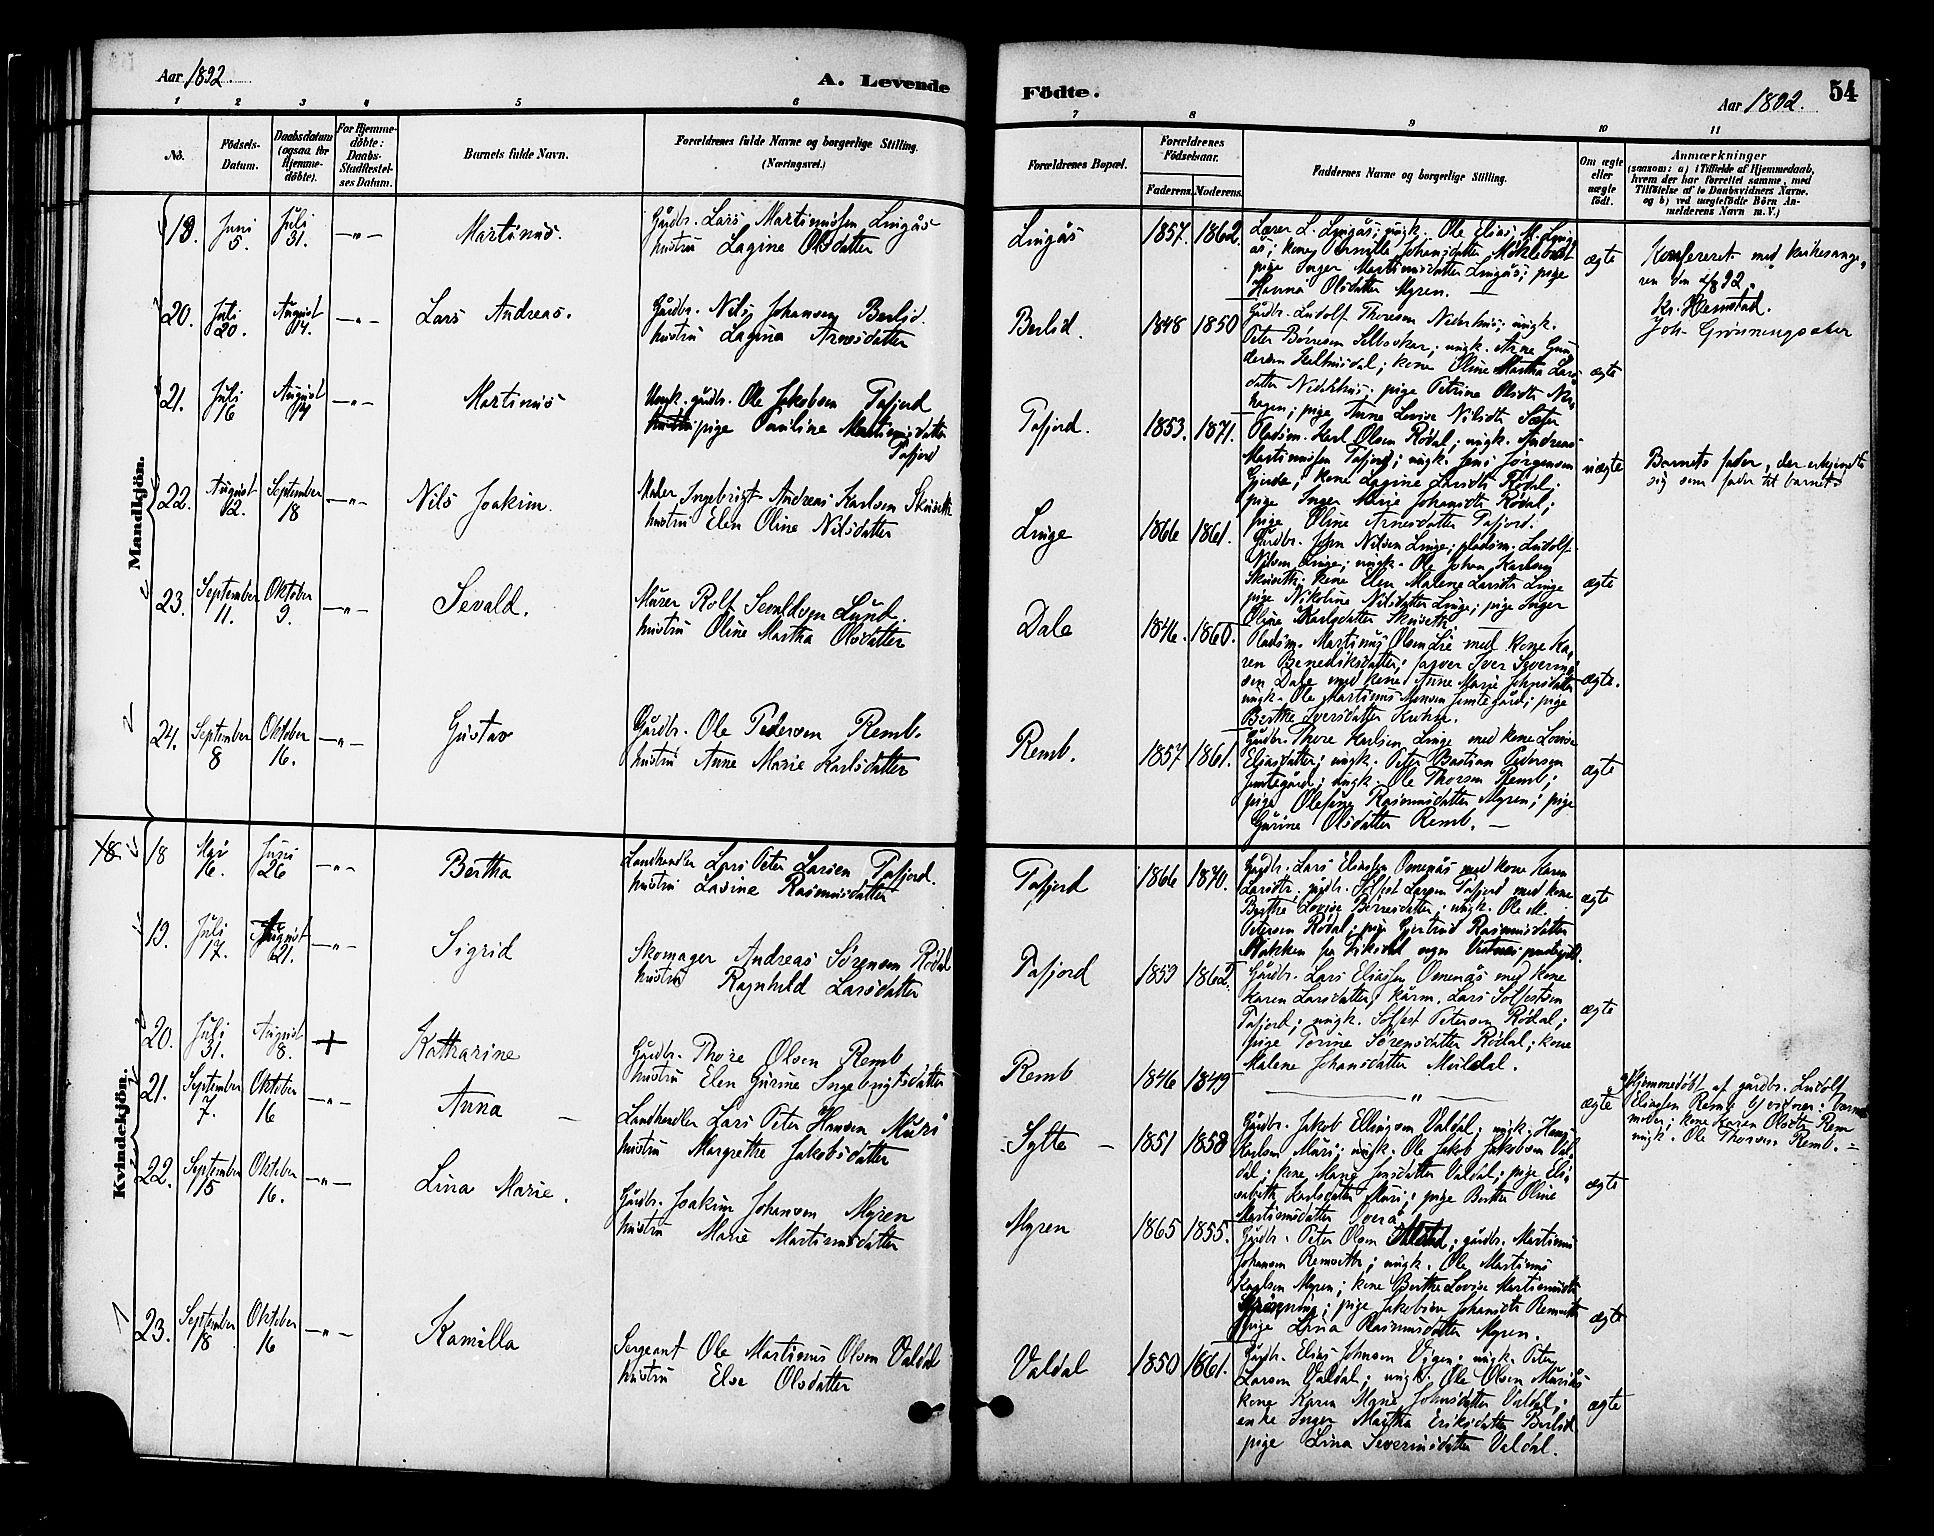 Aar 1892.
A. Levende
Födte.
Aar 1892.
54
1 2 3 4 5 6 7 8 9 10 11
No.
Födsels-Datum.
Daabsdatum (ogsaa for Hjemmedöbte).
For Hjemmedöbte: Daabs-Stadfæstelses Datum.
Barnets fulde Navn.
Forældrenes fulde Navne og borgerlige Stilling. (Næringsvei.)
Forældrenes Bopæl.
Forældrenes Födselsaar.
Faderens. Moderens.
Faddernes Navne og borgerlige Stilling.
Om ægte eller uægte födt.
Anmærkninger
(saasom: a) i Tilfælde af Hjemmedaab, hvem der har forrettet samme, med Tilföielse af to Daabsvidners Navne, og b) ved uægtefödte Börn Anmelderens Navn m. V.)
Mandkjön.
19. Juni 5. Juli 31. —"— Martinus.
Gårdbr. Lars Martinussen Lingås
hustru Lagine Olsdatter
Lingås 1857. 1862.
Lærer L. Lingås; ungk. Ole Elias M. Lingås; kone Pernille Johansdatter Møklebust
pige Inger Martinusdatter Lingås; pige
Hanna Olsdatter Myren. —
ægte
Konfereret med kirkesangeren den
Kr. Hemstad.
Joh. Grønningsæter
20. Juli 20. August 14. —"— Lars Andreas.
Gårdbr. Nils Johansen Berlid.
hustru Lagina Arnesdatter
Berlid. 1848 1850
Gårdbr. Ludolf Thoresen Nedrehus; ungk.
Peter Børresen Selboskar; ungk. Arne Gundersen
kone Oline Martha Larsdatter Nedrehus; pige Petrine Olsdtr
pige Anne Lovise Nilsdtr Sæter
ægte
21. Juli 16 August 14 —"— Martinus
Ungk. gårdbr. Ole Jakobsen Tafjord
pige Pauline Martinusdatter
Tafjord
Tafjord. 1853. 1871.
Pladsm. Karl Olsen Rødal; ungk. Andreas
Martinussen Tafjord; ungk. Jens Jørgensen
Gjerde; kone Lagine Larsdtr Rødal;
pige Inger Marie Johansdtr Rødal;
pige Oline Arnesdatter Tafjord.
uægte
Barnets fader, der erkjendte
sig som fader til barnet.
22. August 12. September 18 —"— Nils Joakim.
Maler Ingebrigt Andreas Karlsen Skuseth
hustru Elen Oline Nilsdatter
Linge 1866 1861.
Gårdbr. John Nilsen Linge; pladsm. Ludolf
Nilsen Linge; ungk. Ole Johan Karlsen
Skuseth; kone Elen Malene Larsdtr Linge
pige Nikoline Nilsdatter Linge; pige Inger
Oline Karlsdatter Skuseth
ægte
23. September 11. Oktober 9. —"— Sevald.
Murer Rolf Sevaldsen Lund.
hustru Oline Martha Olsdatter
Dale 1846. 1860.
Pladsm. Martinus Olsen Lie med kone Karen Benediksdatter; farver Iver Severinsen Dale med kone Anne Marie Johnsdatter
ungk. Ole Martinus Monsen Jemtegård; pige
Berthe Iversdatter
ægte.
24. September 8 Oktober 16. —"— Gustav
Gårdbr. Ole Pedersen Remb.
hustru Anne Marie Karlsdatter
Remb. 1857 1861.
Gårdbr. Thore Karlsen Linge med kone Lovise
Eliasdatter; ungk. Peter Bastian Pedersen
Jemtegård; ungk. Ole Thorsen Remb;
pige Olefine Rasmusdatter Myren; pige
Gurine Olsdatter Remb. —
ægte
Kvindekjön.
18. 18 Mai 16. Juni 26 —"— Bertha
Landhandler Lars Peter Larsen Tafjord.
hustru Lavine Rasmusdatter
Tafjord 1866 1870.
Gårdbr. Lars Eliassen Omenås med kone Karen
Larsdtr; gårdbr. Solfest Larsen Tafjord med kone
Berthe Lovise Børresdatter; ungk. Ole M.
Petersen Rødal; pige Gjertrud Rasmusdatter
ægte
19. Juli 17. August 21. —"— Sigrid
Skomager Andreas Sørensen Rødal
hustru Ragnhild Larsdatter
Tafjord 1859 1862.
Gårdbr. Lars Eliassen Omenås med kone
Karen Larsdatter; kårm. Lars Solfestsen
Tafjord; ungk. Solfest Petersen Rødal;
pige Torine Sørensdatter Rødal; kone
Malene Johansdatter Muldal.
ægte
20. Juli 31. August 8. + Katharine
Gårdbr. Thore Olsen Remb
hustru Elen Gurine Ingebrigtsdatter
Remb 1846 1849
—"—
ægte
Hjemmedøbt af gårdbr. Ludolf
Eliassen Remb. Vidner: barnets
moder; kone Karen Olsdtr Rem
ungk. Ole Thorsen Remb. —
21. September 7. Oktober 16 —"— Anna
Landhandler Lars Peter Hansen Muri
hustru Margrethe Jakobsdatter
Sylte — 1851 1858
Gårdbr. Jakob Ellingsen Valdal; ungk. Hans
Karlsen Muri; ungk. Ole Jakob Jakobsen Valdal; kone Marie Jonsdatter Valdal; pige Elisabeth Karlsdatter Muri; pige Berthe Oline
Martinusdatter Overå
ægte
22. September 15 Oktober 16. —"— Lina Marie.
Gårdbr. Joakim Johansen Myren
hustru Marie Martinusdatter
Myren 1865 1855.
Gårdbr. Peter Olsen gårdbr. Martinus
Johansen Remseth; ungk. Ole Martinus
Karlsen Myren; kone Berthe Lovise Martinusdtr
pige Jakobine Johansdtr Remseth
pige Lina Rasmusdatter Myren.
ægte
23. September 18 Oktober 16 —"— Kamilla
Sergeant Ole Martinus Olsen Valdal
hustru Else Olsdatter
Valdal 1850 1861.
Gårdbr. Elias Johnsen Uren; ungk. Peter
Larsen Valdal; ungk. Ole Olsen Muriås
kone Karen Marie Johnsdatter Valdal;
enke Inger Martha Eriksdatter Berlid
pige Lina Severinsdatter Valdal.
ægte